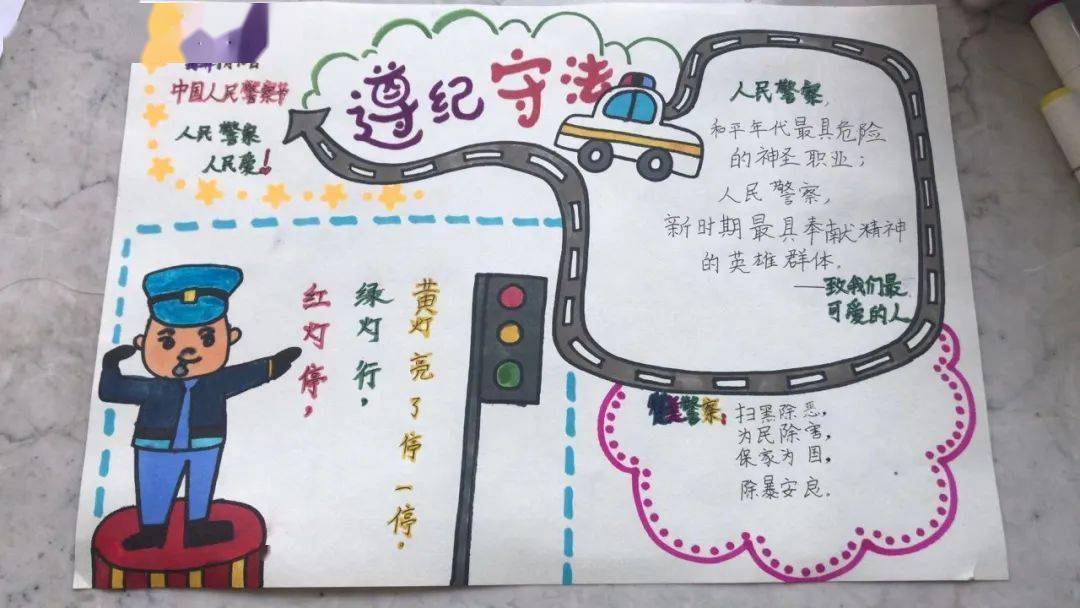 遵纪守法
中国人民警察节
人民警察
人民爱!
人民警察,
和平年代最具危险
的神圣职业;
人民警察,
新时期最具奉献精神
的英雄群体.
——致我们最
可爱的人
红灯停,
绿灯行,
黄灯亮了停一停.
警察:扫黑除恶,
为民除害,
保家为国,
除暴安良.